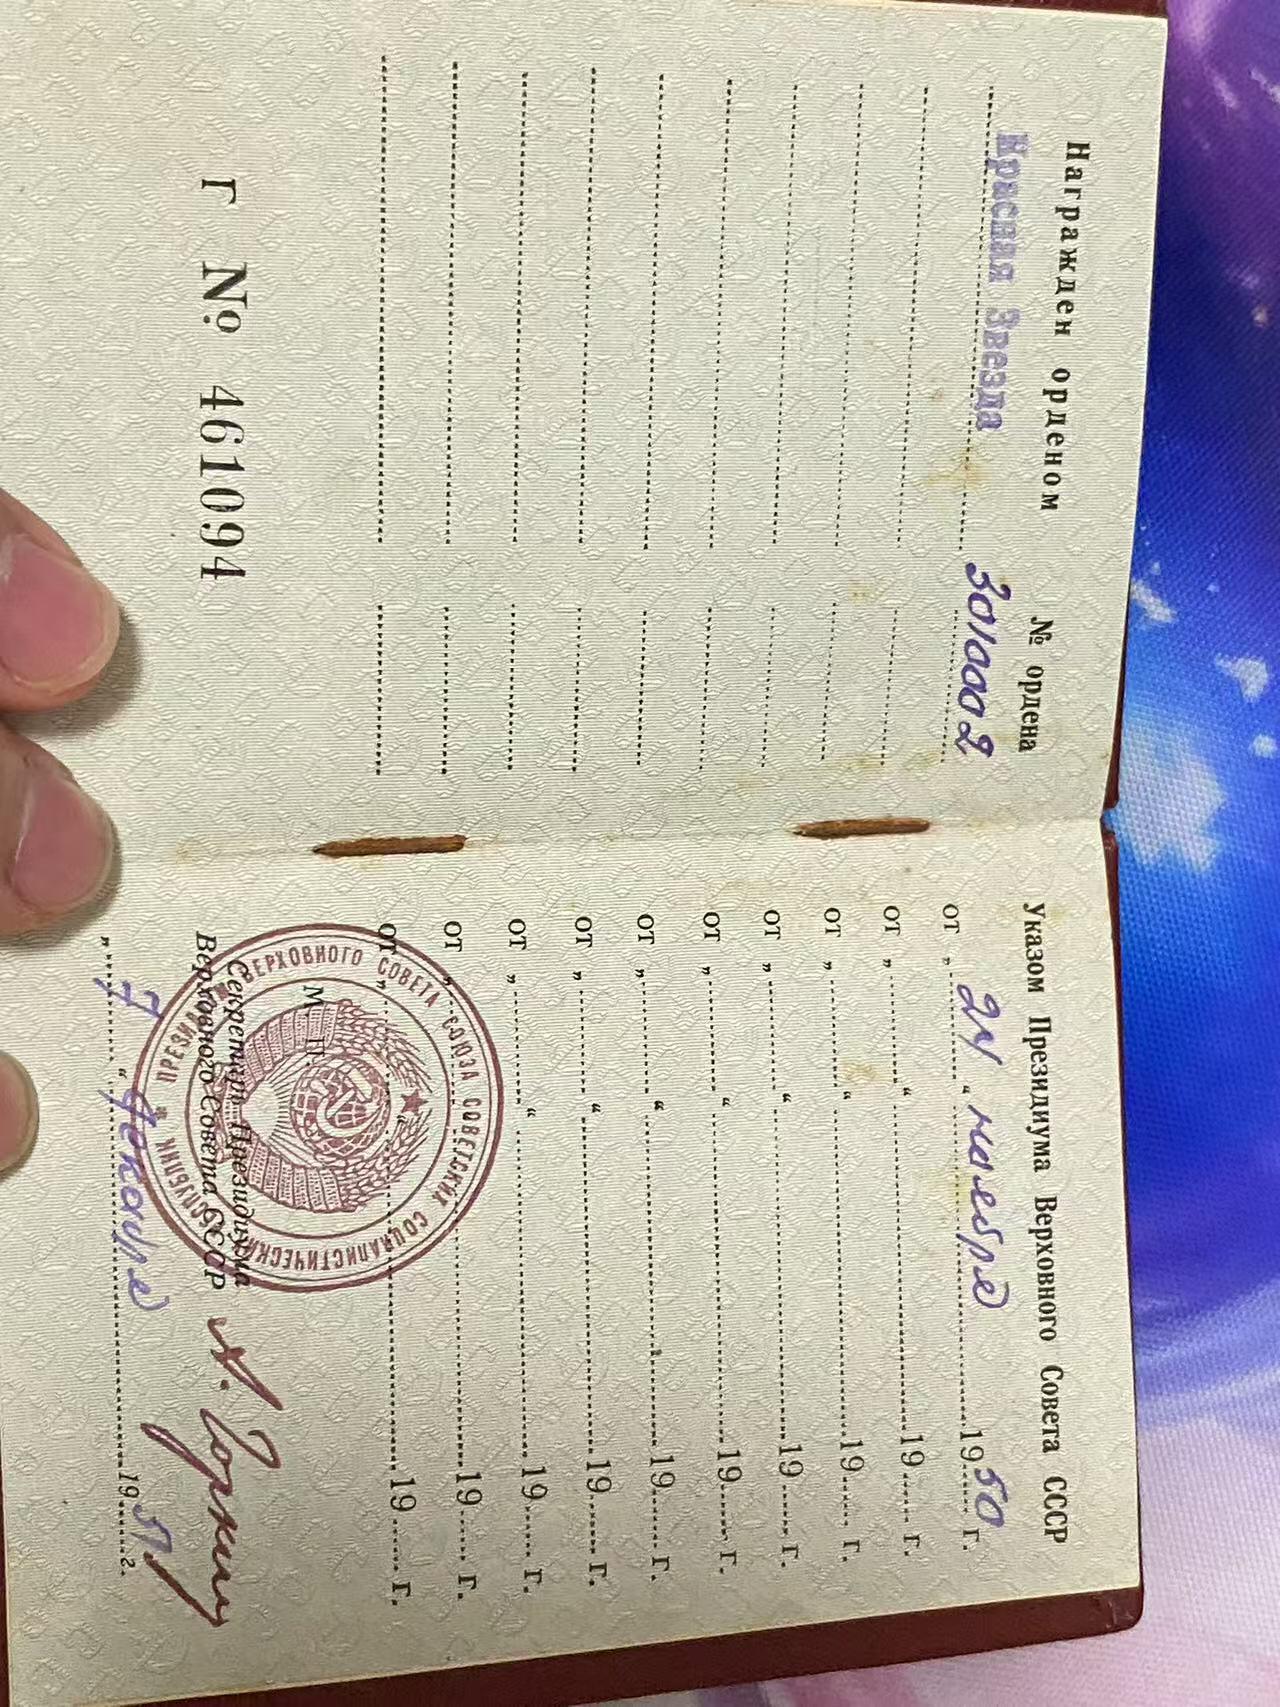 Награжден орденом № ордена
Красная Звезда 3010002
Г № 461094
Указом Президиума Верховного Совета СССР
от „24“ ноября 1950 г.
от „ “ 19 г.
от „ “ 19 г.
от „ “ 19 г.
от „ “ 19 г.
от „ “ 19 г.
от „ “ 19 г.
от „ “ 19 г.
от „ “ 19 г.
от „ “ 19 г.
ПРЕЗИДИУМ ВЕРХОВНОГО СОВЕТА СОЮЗА СОВЕТСКИХ СОЦИАЛИСТИЧЕСКИХ РЕСПУБЛИК
М. П.
Секретарь Президиума
Верховного Совета СССР А. Горкин
„7“ декабря 1951 г.